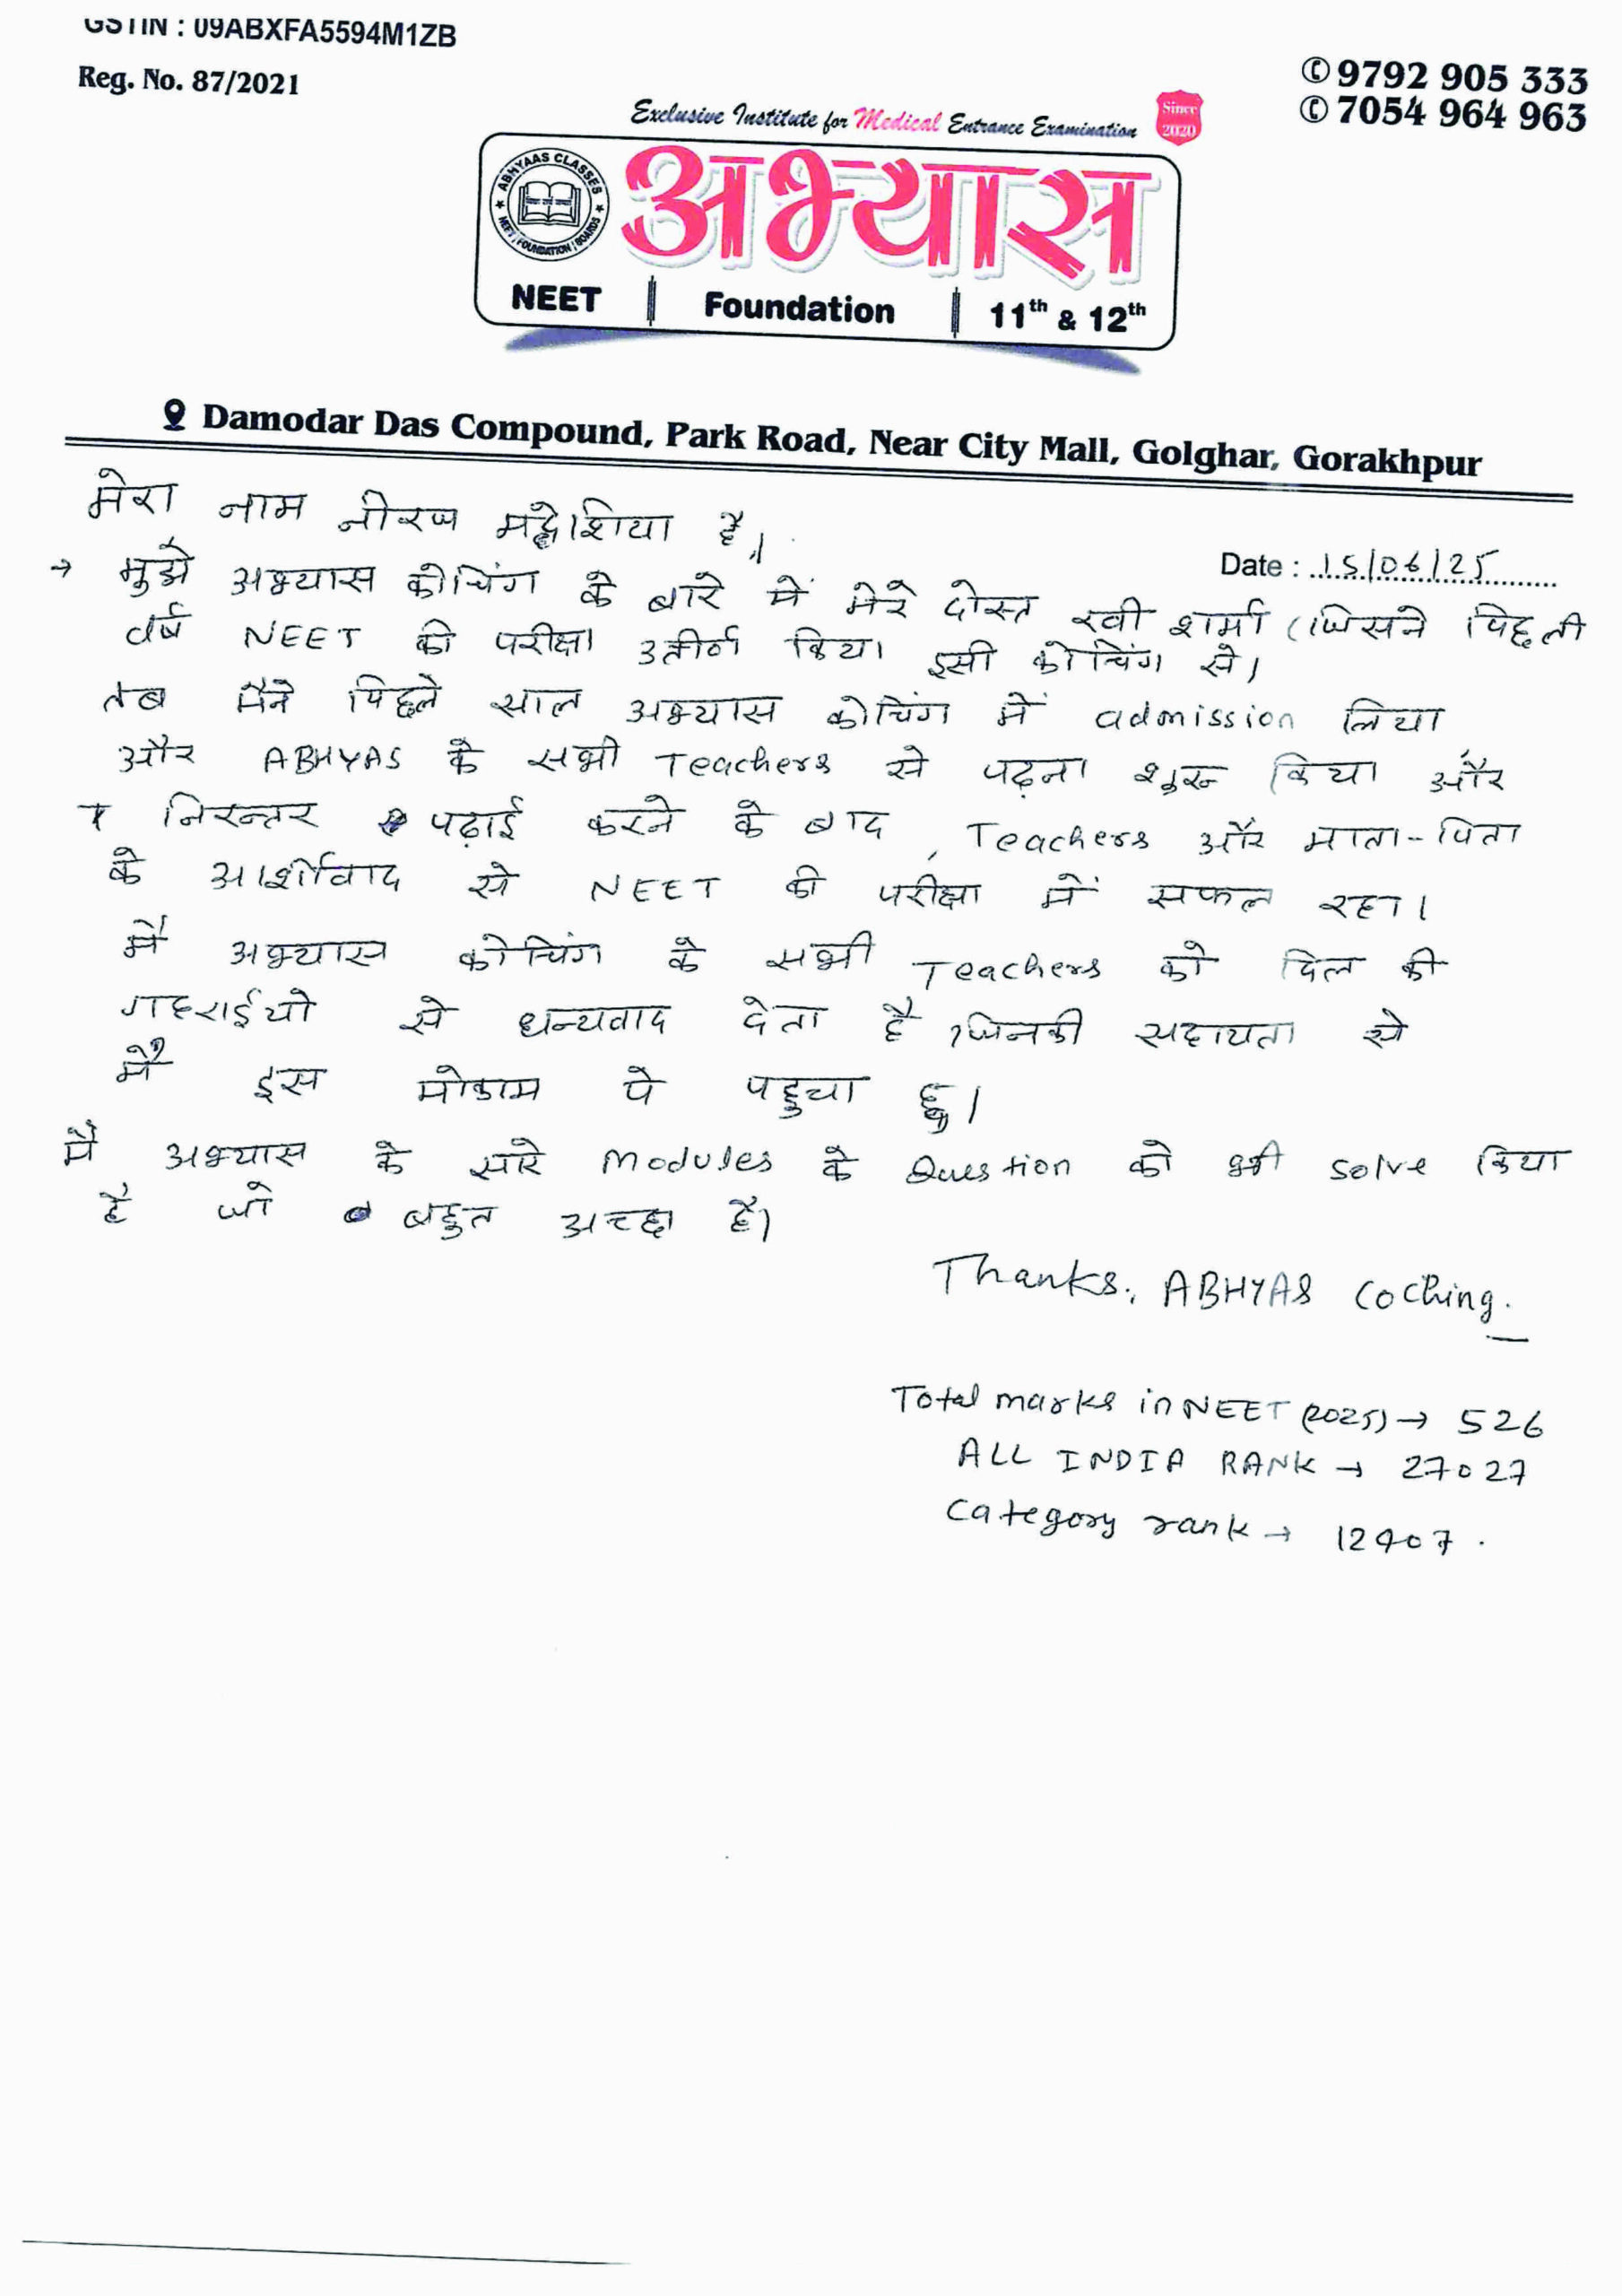 GSTIN : 09ABXFA5594M1ZB
Reg. No. 87/2021
✆ 9792 905 333
✆ 7054 964 963
Exclusive Institute for Medical Entrance Examination
Since 2020
ABHYAAS CLASSES
NEET | FOUNDATION | BOARDS
अभ्यास
NEET | Foundation | 11th & 12th
Damodar Das Compound, Park Road, Near City Mall, Golghar, Gorakhpur
मेरा नाम नीरज मद्धेशिया है।
Date : 15/06/25
→ मुझे अभ्यास कोचिंग के बारे में मेरे दोस्त रवी शर्मा (जिसने पिछली
वर्ष NEET की परीक्षा उत्तीर्ण किया इसी कोचिंग से।
तब मैने पिछले साल अभ्यास कोचिंग में admission लिया
और ABHYAS के सभी Teachers से पढ़ना शुरू किया और
निरन्तर पढ़ाई करने के बाद, Teachers और माता-पिता
के आर्शीवाद से NEET की परीक्षा में सफल रहा।
मैं अभ्यास कोचिंग के सभी Teachers को दिल की
गहराईयो से धन्यवाद देता है जिनकी सहायता से
मैं इस मोकाम पे पहुचा हु।
मै अभ्यास के सारे modules के Question को भी solve किया
है जो बहुत अच्छा है।
Thanks., ABHYAS Coching.
Total marks in NEET (2025) → 526
ALL INDIA RANK → 27027
Category rank →